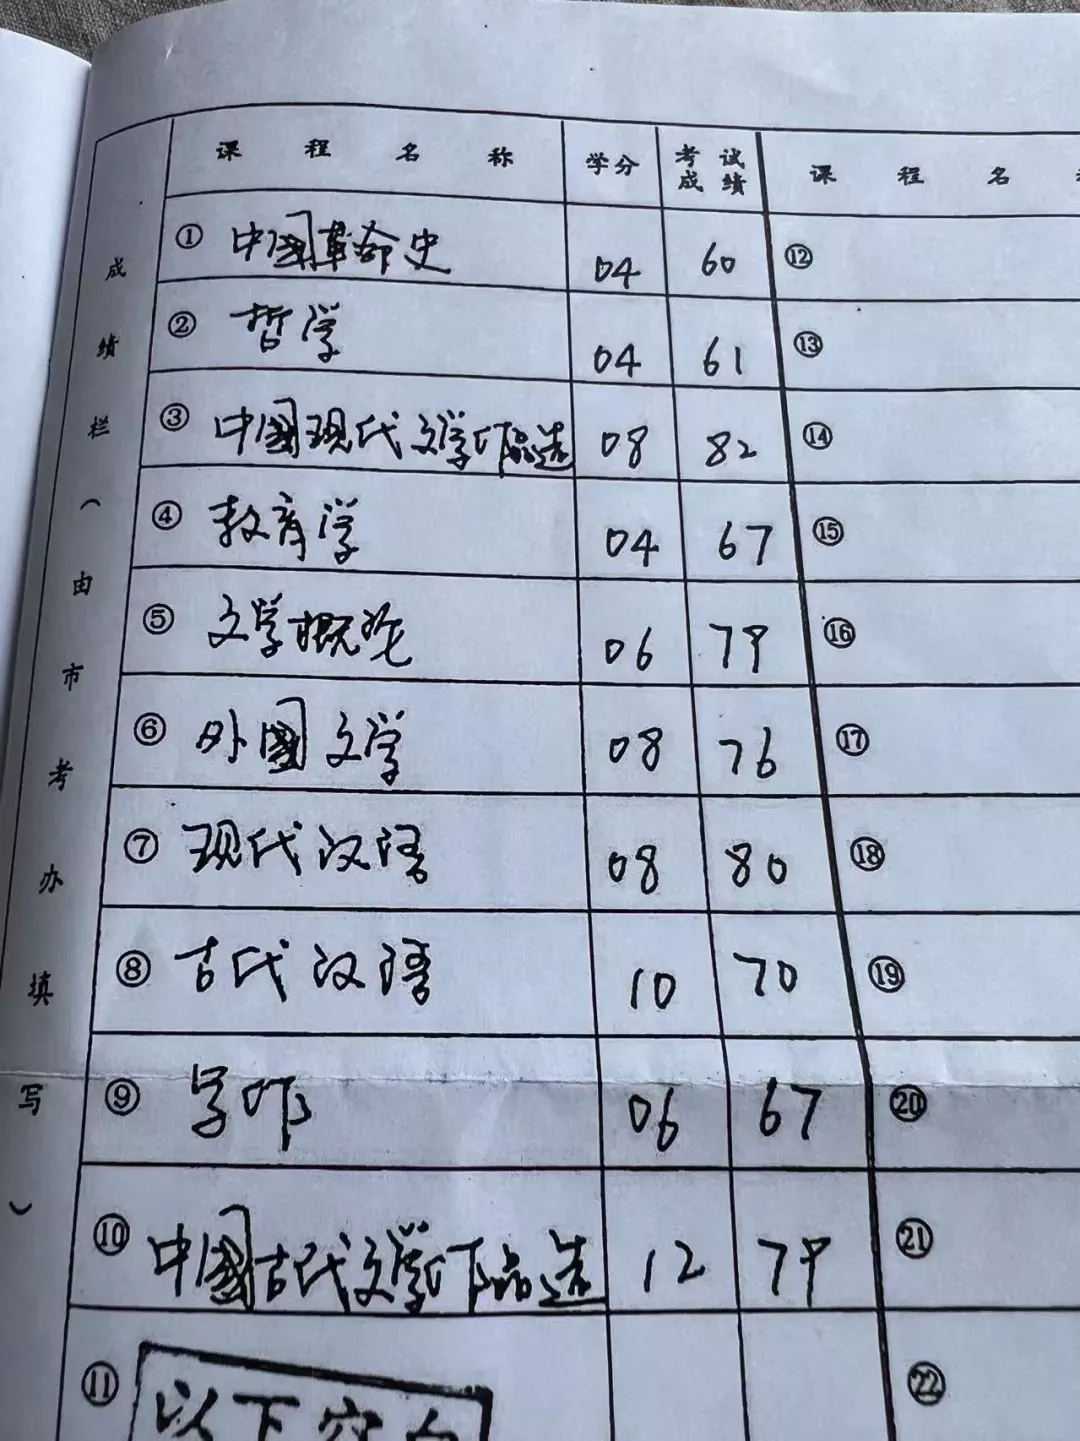 课程名称 学分 考试成绩 课程名
成绩栏（由市考办填写）
① 中国革命史 04 60 ⑫
② 哲学 04 61 ⑬
③ 中国现代文学作品选 08 82 ⑭
④ 教育学 04 67 ⑮
⑤ 文学概论 06 79 ⑯
⑥ 外国文学 08 76 ⑰
⑦ 现代汉语 08 80 ⑱
⑧ 古代汉语 10 70 ⑲
⑨ 写作 06 67 ⑳
⑩ 中国古代文学作品选 12 79 ㉑
⑪ 以下空白 ㉒